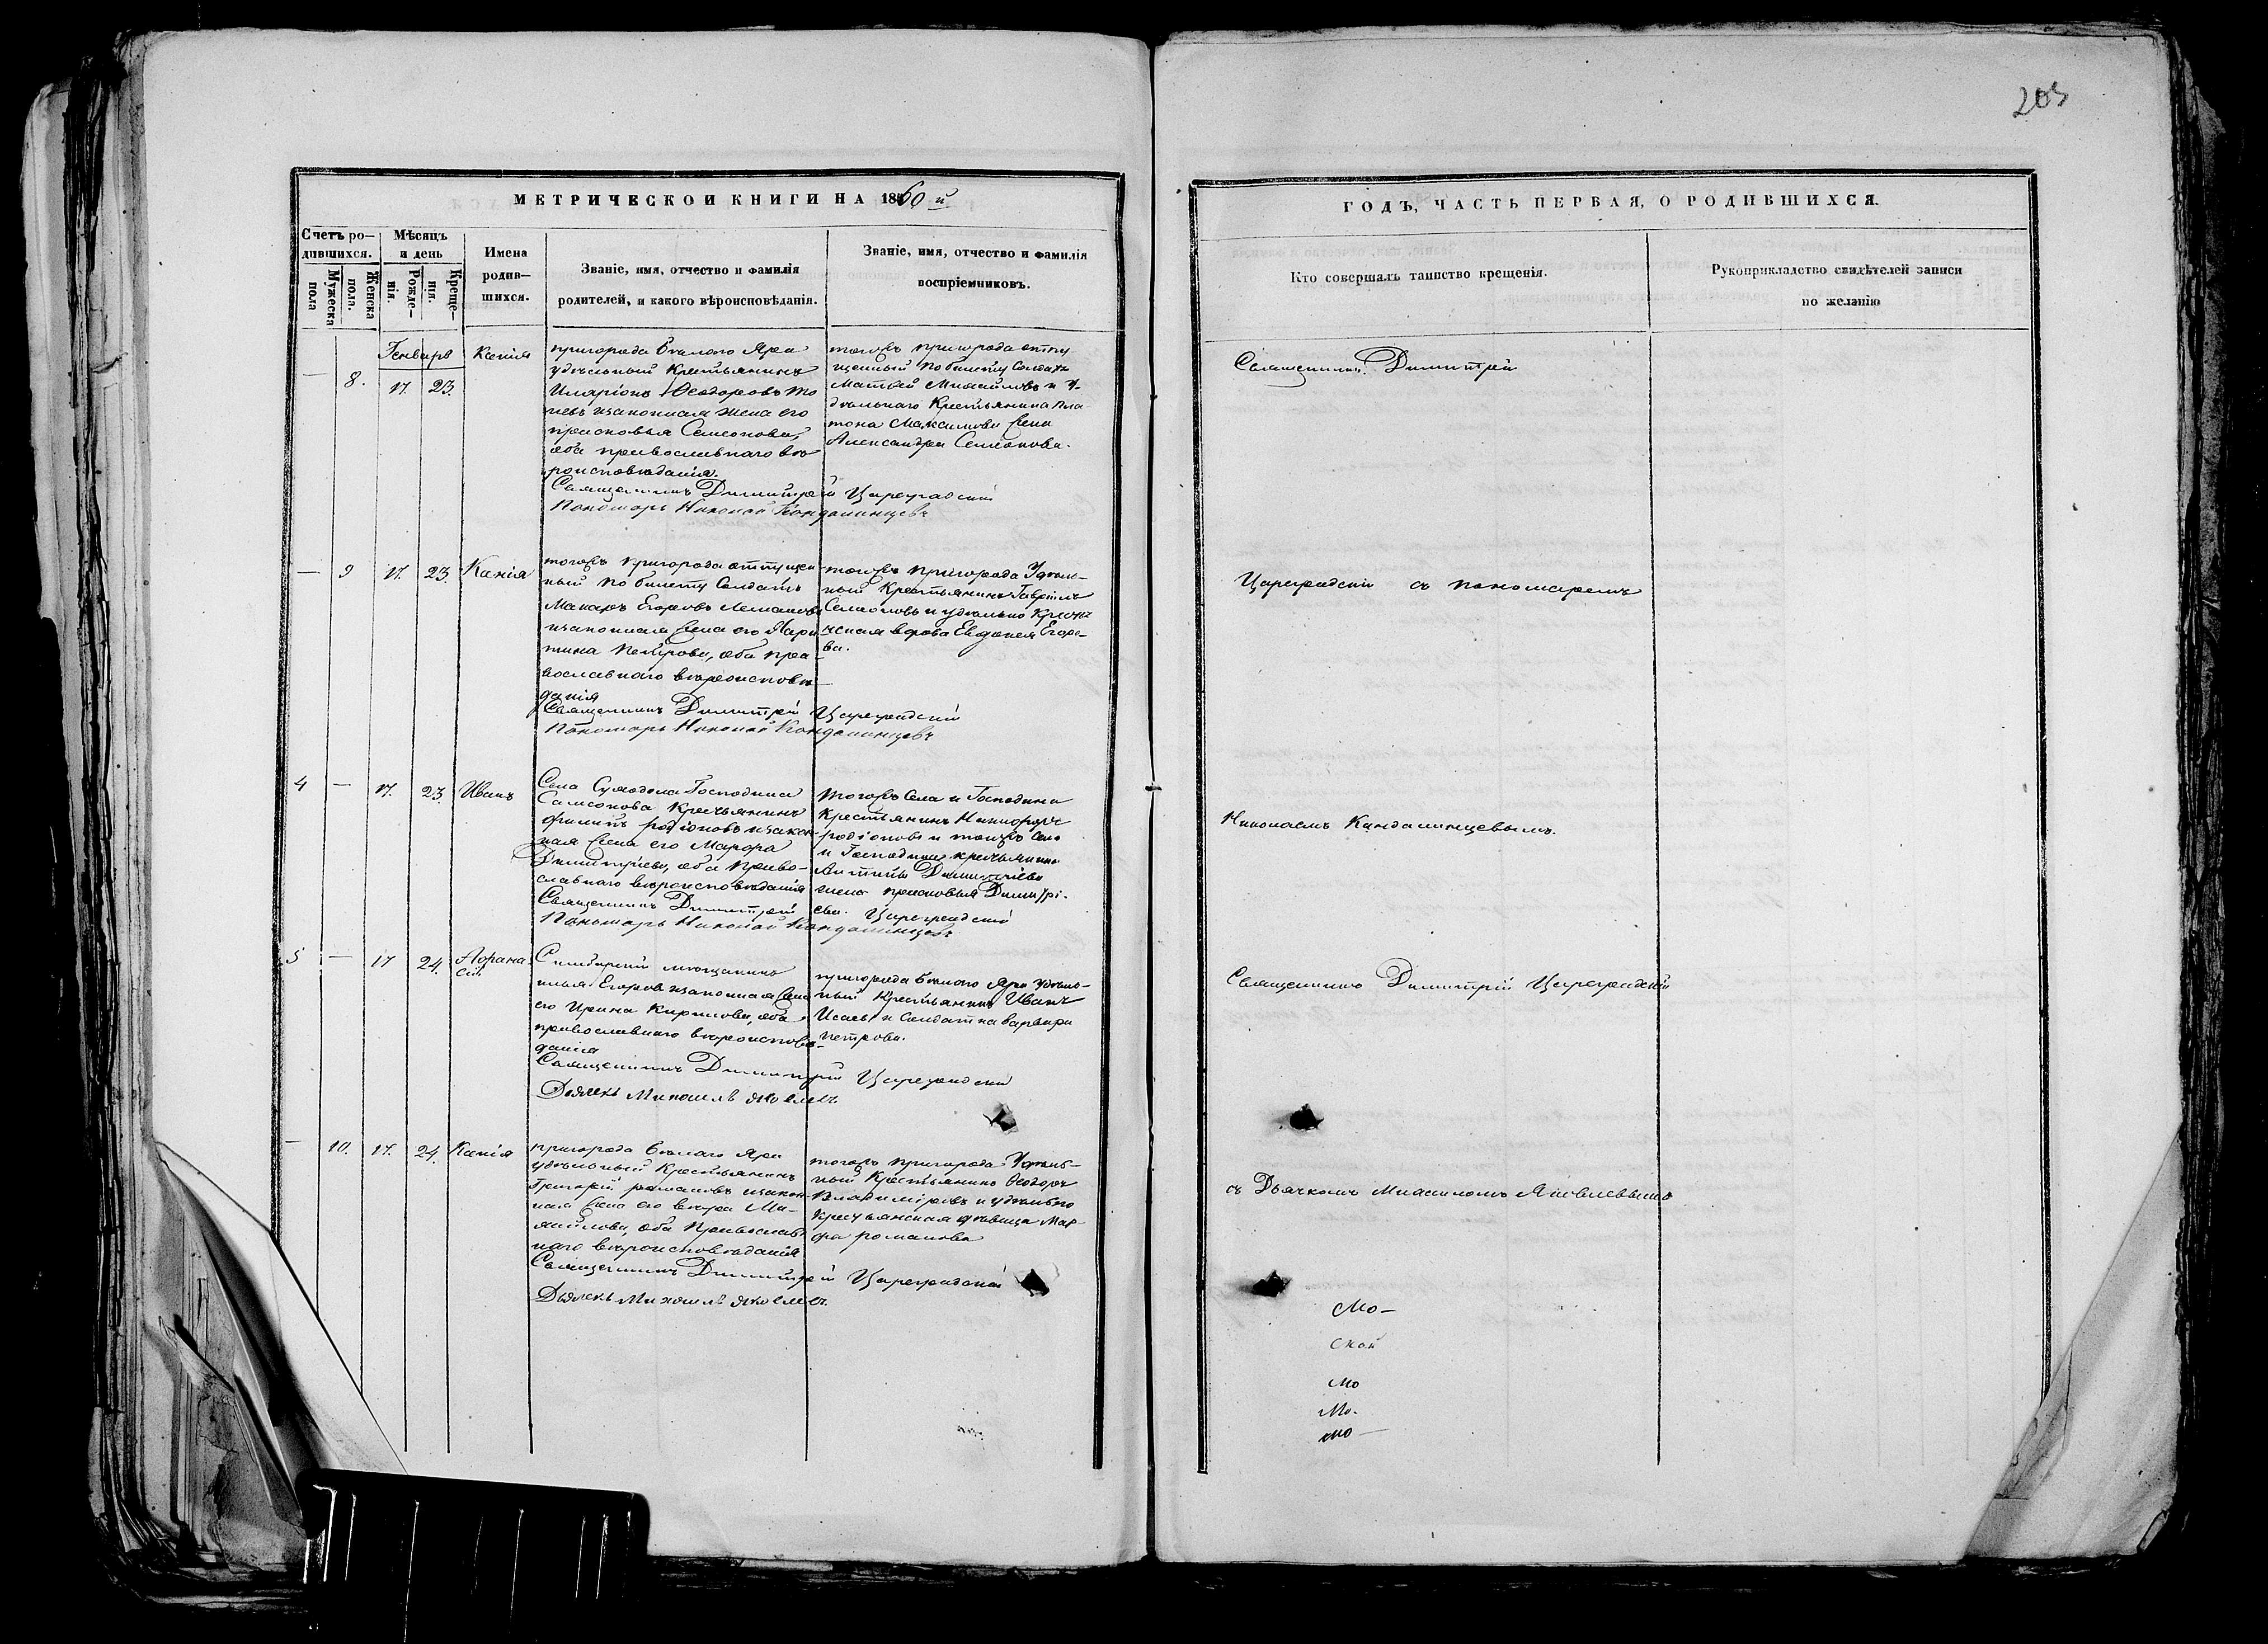 203
МЕТРИЧЕСКОЙ КНИГИ НА 1860 й
ГОДЪ, ЧАСТЬ ПЕРВАЯ, О РОДИВШИХСЯ.
Счетъ ро-
дившихся.
Мужеска
пола
Женска
пола.
Мѣсяцъ
и день
Рожде-
нія.
Креще-
нія.
Имена
родив-
шихся.
Званіе, имя, отчество и фамилія
родителей, и какого вѣроисповѣданія.
Званіе, имя, отчество и фамилія
воспріемниковъ.
Кто совершалъ таинство крещенія.
Рукоприкладство свидѣтелей записи
по желанію
Генваря
— 8. 17. 23.
Ксенія
пригорода Бѣлаго Яра
удѣльный Крестьянинъ
Иларіонъ Ѳеодоровъ
законная жена его
Прасковья Семенова,
оба православнаго вѣ
роисповѣданія.
Священникъ Димитрій Цареградскій
Пономарь Николай Кандалинцевъ
тогожъ пригорода отпу
щенный по билету Солдатъ
Матвей Михайловъ и у-
дѣльнаго Крестьянина Пла
тона Максимова жена
Александра Семенова.
Священникъ Димитрій
— 9 17. 23.
Ксенія
тогожъ пригорода отпущен
ный по билету Солдатъ
Макаръ Егоровъ
законная жена его Хари
тина Петрова, оба пра-
вославнаго вѣроисповѣ
данія
Священникъ Димитрій Цареградскій
Пономарь Николай Кандалинцевъ
тогожъ пригорода Удѣль-
ный Крестьянинъ Гаврiилъ
Семеновъ и удѣльно Крестья
нская вдова Евдокея Егоро-
ва.
Цареградскій съ пономаремъ
4 — 17. 23.
Иванъ
Села Господина
Самсонова Крестьянинъ
Филипъ родіоновъ и закон
ная жена его Марфа
Димитріева, оба право-
славнаго вѣроисповѣданія
Священникъ Димитрій Цареградскій
Пономарь Николай Кандалинцевъ
тогожъ Села и Господина
Крестьянинъ Никифоръ
родіоновъ и тогожъ села
и Господина крестьянина
Антипы Димитріева
жена прасковья Димитрі-
ева.
Николаемъ Кандалинцевымъ.
5 — 17 24.
Афана
сій
Симбирскій мещанинъ
илья Егоровъ и законная жена
его Ирина Кирилова, оба
православнаго вѣроисповѣ-
данія
Священникъ Димитрій Цареградскій
Дьячекъ Михаилъ Яковлевъ
пригорода Бѣлаго Яра удѣль-
ный Крестьянинъ Иванъ
Исаевъ и Солдатка варвара
петрова.
Священникъ Димитрій Цареградскій
— 10. 17. 24.
Ксенія
пригорода Бѣлаго Яра
удѣльный Крестьянинъ
Григорій романовъ и закон-
ная жена его вѣра Ми-
хайлова, оба Православ
наго вѣроисповѣданія
Священникъ Димитрій Цареградскій
Дьячекъ Михаилъ Яковлевъ.
тогожъ пригорода Удѣль-
ный Крестьянинъ Ѳеодоръ
Владиміровъ и удѣльно
Крестьянская дѣвица Мар-
фа романова
съ Дьячкомъ Михаиломъ Яковлевымъ
Мо-
Мо
Мо.
мо